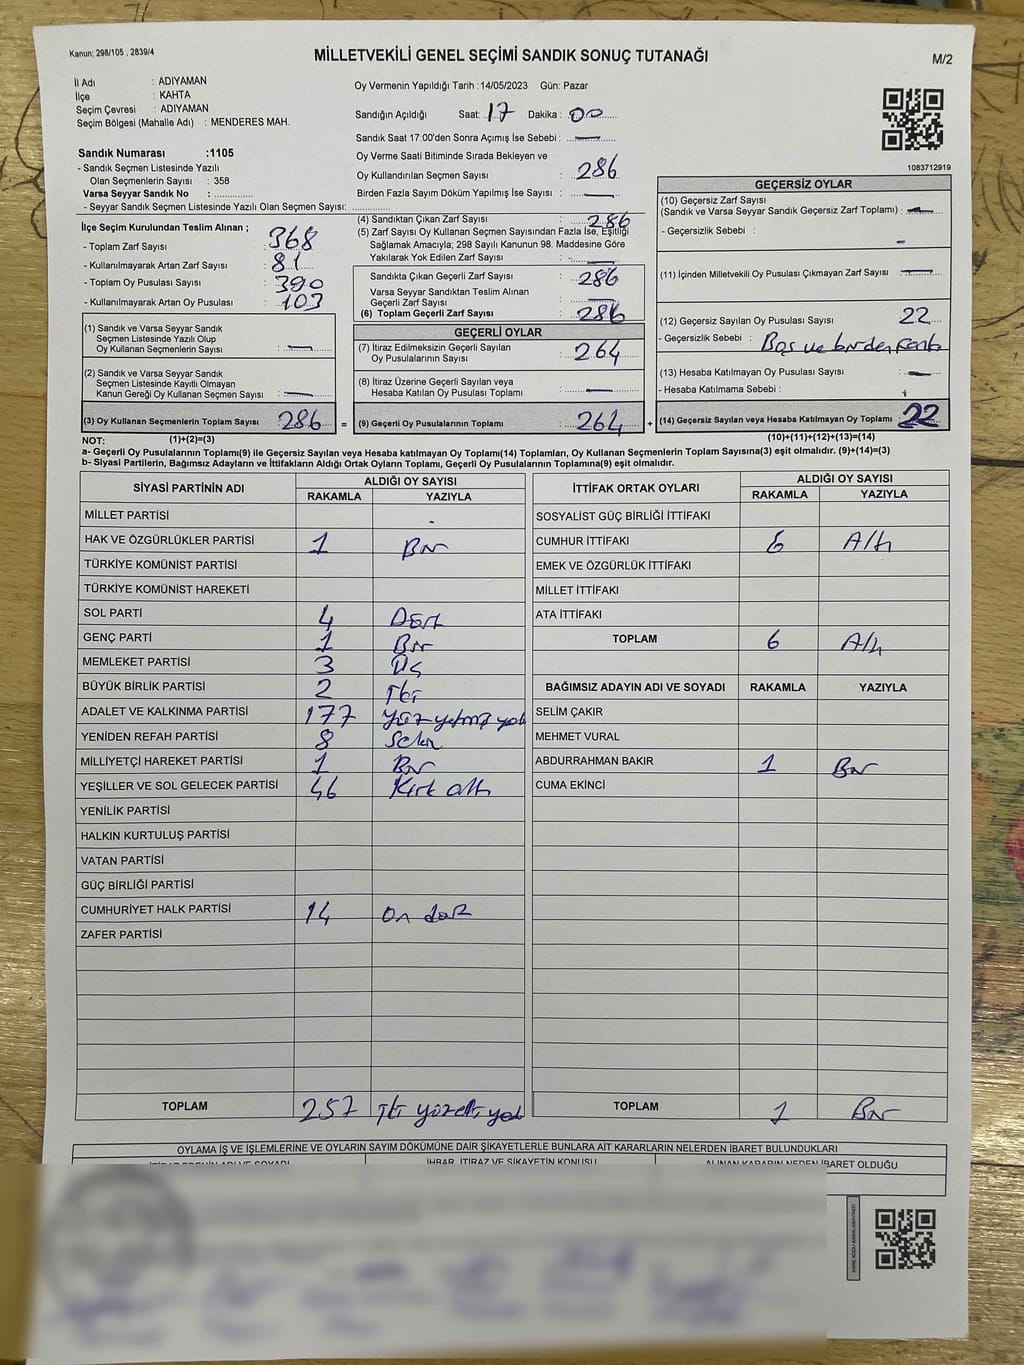 Kanun; 298/105 , 2839/4
MİLLETVEKİLİ GENEL SEÇİMİ SANDIK SONUÇ TUTANAĞI
M/2
İl Adı : ADIYAMAN
İlçe : KAHTA
Seçim Çevresi : ADIYAMAN
Seçim Bölgesi (Mahalle Adı) : MENDERES MAH.
Sandık Numarası :1105
- Sandık Seçmen Listesinde Yazılı
Olan Seçmenlerin Sayısı : 358
Varsa Seyyar Sandık No :
- Seyyar Sandık Seçmen Listesinde Yazılı Olan Seçmen Sayısı:
Oy Vermenin Yapıldığı Tarih :14/05/2023 Gün: Pazar
Sandığın Açıldığı Saat: 17 Dakika : 00
Sandık Saat 17:00'den Sonra Açımış İse Sebebi : —
Oy Verme Saati Bitiminde Sırada Bekleyen ve
Oy Kullandırılan Seçmen Sayısı : 286
Birden Fazla Sayım Döküm Yapılmış İse Sayısı : —
1083712919
İlçe Seçim Kurulundan Teslim Alınan ;
- Toplam Zarf Sayısı : 368
- Kullanılmayarak Artan Zarf Sayısı : 81
- Toplam Oy Pusulası Sayısı : 390
- Kullanılmayarak Artan Oy Pusulası : 103
(1) Sandık ve Varsa Seyyar Sandık
Seçmen Listesinde Yazılı Olup
Oy Kullanan Seçmenlerin Sayısı : —
(2) Sandık ve Varsa Seyyar Sandık
Seçmen Listesinde Kayıtlı Olmayan
Kanun Gereği Oy Kullanan Seçmen Sayısı : —
(3) Oy Kullanan Seçmenlerin Toplam Sayısı : 286 =
(4) Sandıktan Çıkan Zarf Sayısı : 286
(5) Zarf Sayısı Oy Kullanan Seçmen Sayısından Fazla İse, Eşitliği
Sağlamak Amacıyla; 298 Sayılı Kanunun 98. Maddesine Göre
Yakılarak Yok Edilen Zarf Sayısı : —
Sandıkta Çıkan Geçerli Zarf Sayısı : 286
Varsa Seyyar Sandıktan Teslim Alınan
Geçerli Zarf Sayısı : —
(6) Toplam Geçerli Zarf Sayısı : 286
GEÇERLİ OYLAR
(7) İtiraz Edilmeksizin Geçerli Sayılan
Oy Pusulalarının Sayısı : 264
(8) İtiraz Üzerine Geçerli Sayılan veya
Hesaba Katılan Oy Pusulası Toplamı : —
(9) Geçerli Oy Pusulalarının Toplamı : 264 +
GEÇERSİZ OYLAR
(10) Geçersiz Zarf Sayısı
(Sandık ve Varsa Seyyar Sandık Geçersiz Zarf Toplamı) : —
- Geçersizlik Sebebi : -
(11) İçinden Milletvekili Oy Pusulası Çıkmayan Zarf Sayısı : —
(12) Geçersiz Sayılan Oy Pusulası Sayısı : 22
- Geçersizlik Sebebi : Boş ve birden fazla
(13) Hesaba Katılmayan Oy Pusulası Sayısı : —
- Hesaba Katılmama Sebebi :
(14) Geçersiz Sayılan veya Hesaba Katılmayan Oy Toplamı : 22
NOT: (1)+(2)=(3) (10)+(11)+(12)+(13)=(14)
a- Geçerli Oy Pusulalarının Toplamı(9) ile Geçersiz Sayılan veya Hesaba Katılmayan Oy Toplamı(14) Toplamları, Oy Kullanan Seçmenlerin Toplam Sayısına(3) eşit olmalıdır. (9)+(14)=(3)
b- Siyasi Partilerin, Bağımsız Adayların ve İttifakların Aldığı Ortak Oyların Toplamı, Geçerli Oy Pusulalarının Toplamına(9) eşit olmalıdır.
SİYASİ PARTİNİN ADI ALDIĞI OY SAYISI
RAKAMLA YAZIYLA
MİLLET PARTİSİ -
HAK VE ÖZGÜRLÜKLER PARTİSİ 1 Bir
TÜRKİYE KOMÜNİST PARTİSİ
TÜRKİYE KOMÜNİST HAREKETİ
SOL PARTİ 4 Dört
GENÇ PARTİ 1 Bir
MEMLEKET PARTİSİ 3 Üç
BÜYÜK BİRLİK PARTİSİ 2 İki
ADALET VE KALKINMA PARTİSİ 177 Yüz yetmiş yedi
YENİDEN REFAH PARTİSİ 8 Sekiz
MİLLİYETÇİ HAREKET PARTİSİ 1 Bir
YEŞİLLER VE SOL GELECEK PARTİSİ 46 Kırk altı
YENİLİK PARTİSİ
HALKIN KURTULUŞ PARTİSİ
VATAN PARTİSİ
GÜÇ BİRLİĞİ PARTİSİ
CUMHURİYET HALK PARTİSİ 14 On dört
ZAFER PARTİSİ
TOPLAM 257 İki yüz elli yedi
İTTİFAK ORTAK OYLARI ALDIĞI OY SAYISI
RAKAMLA YAZIYLA
SOSYALİST GÜÇ BİRLİĞİ İTTİFAKI
CUMHUR İTTİFAKI 6 Altı
EMEK VE ÖZGÜRLÜK İTTİFAKI
MİLLET İTTİFAKI
ATA İTTİFAKI
TOPLAM 6 Altı
BAĞIMSIZ ADAYIN ADI VE SOYADI RAKAMLA YAZIYLA
SELİM ÇAKIR
MEHMET VURAL
ABDURRAHMAN BAKIR 1 Bir
CUMA EKİNCİ
TOPLAM 1 Bir
OYLAMA İŞ VE İŞLEMLERİNE VE OYLARIN SAYIM DÖKÜMÜNE DAİR ŞİKAYETLERLE BUNLARA AİT KARARLARIN NELERDEN İBARET BULUNDUKLARI
İHBAR, İTİRAZ VE ŞİKAYETİN KONUSU ALINAN KARARIN NEDEN İBARET OLDUĞU